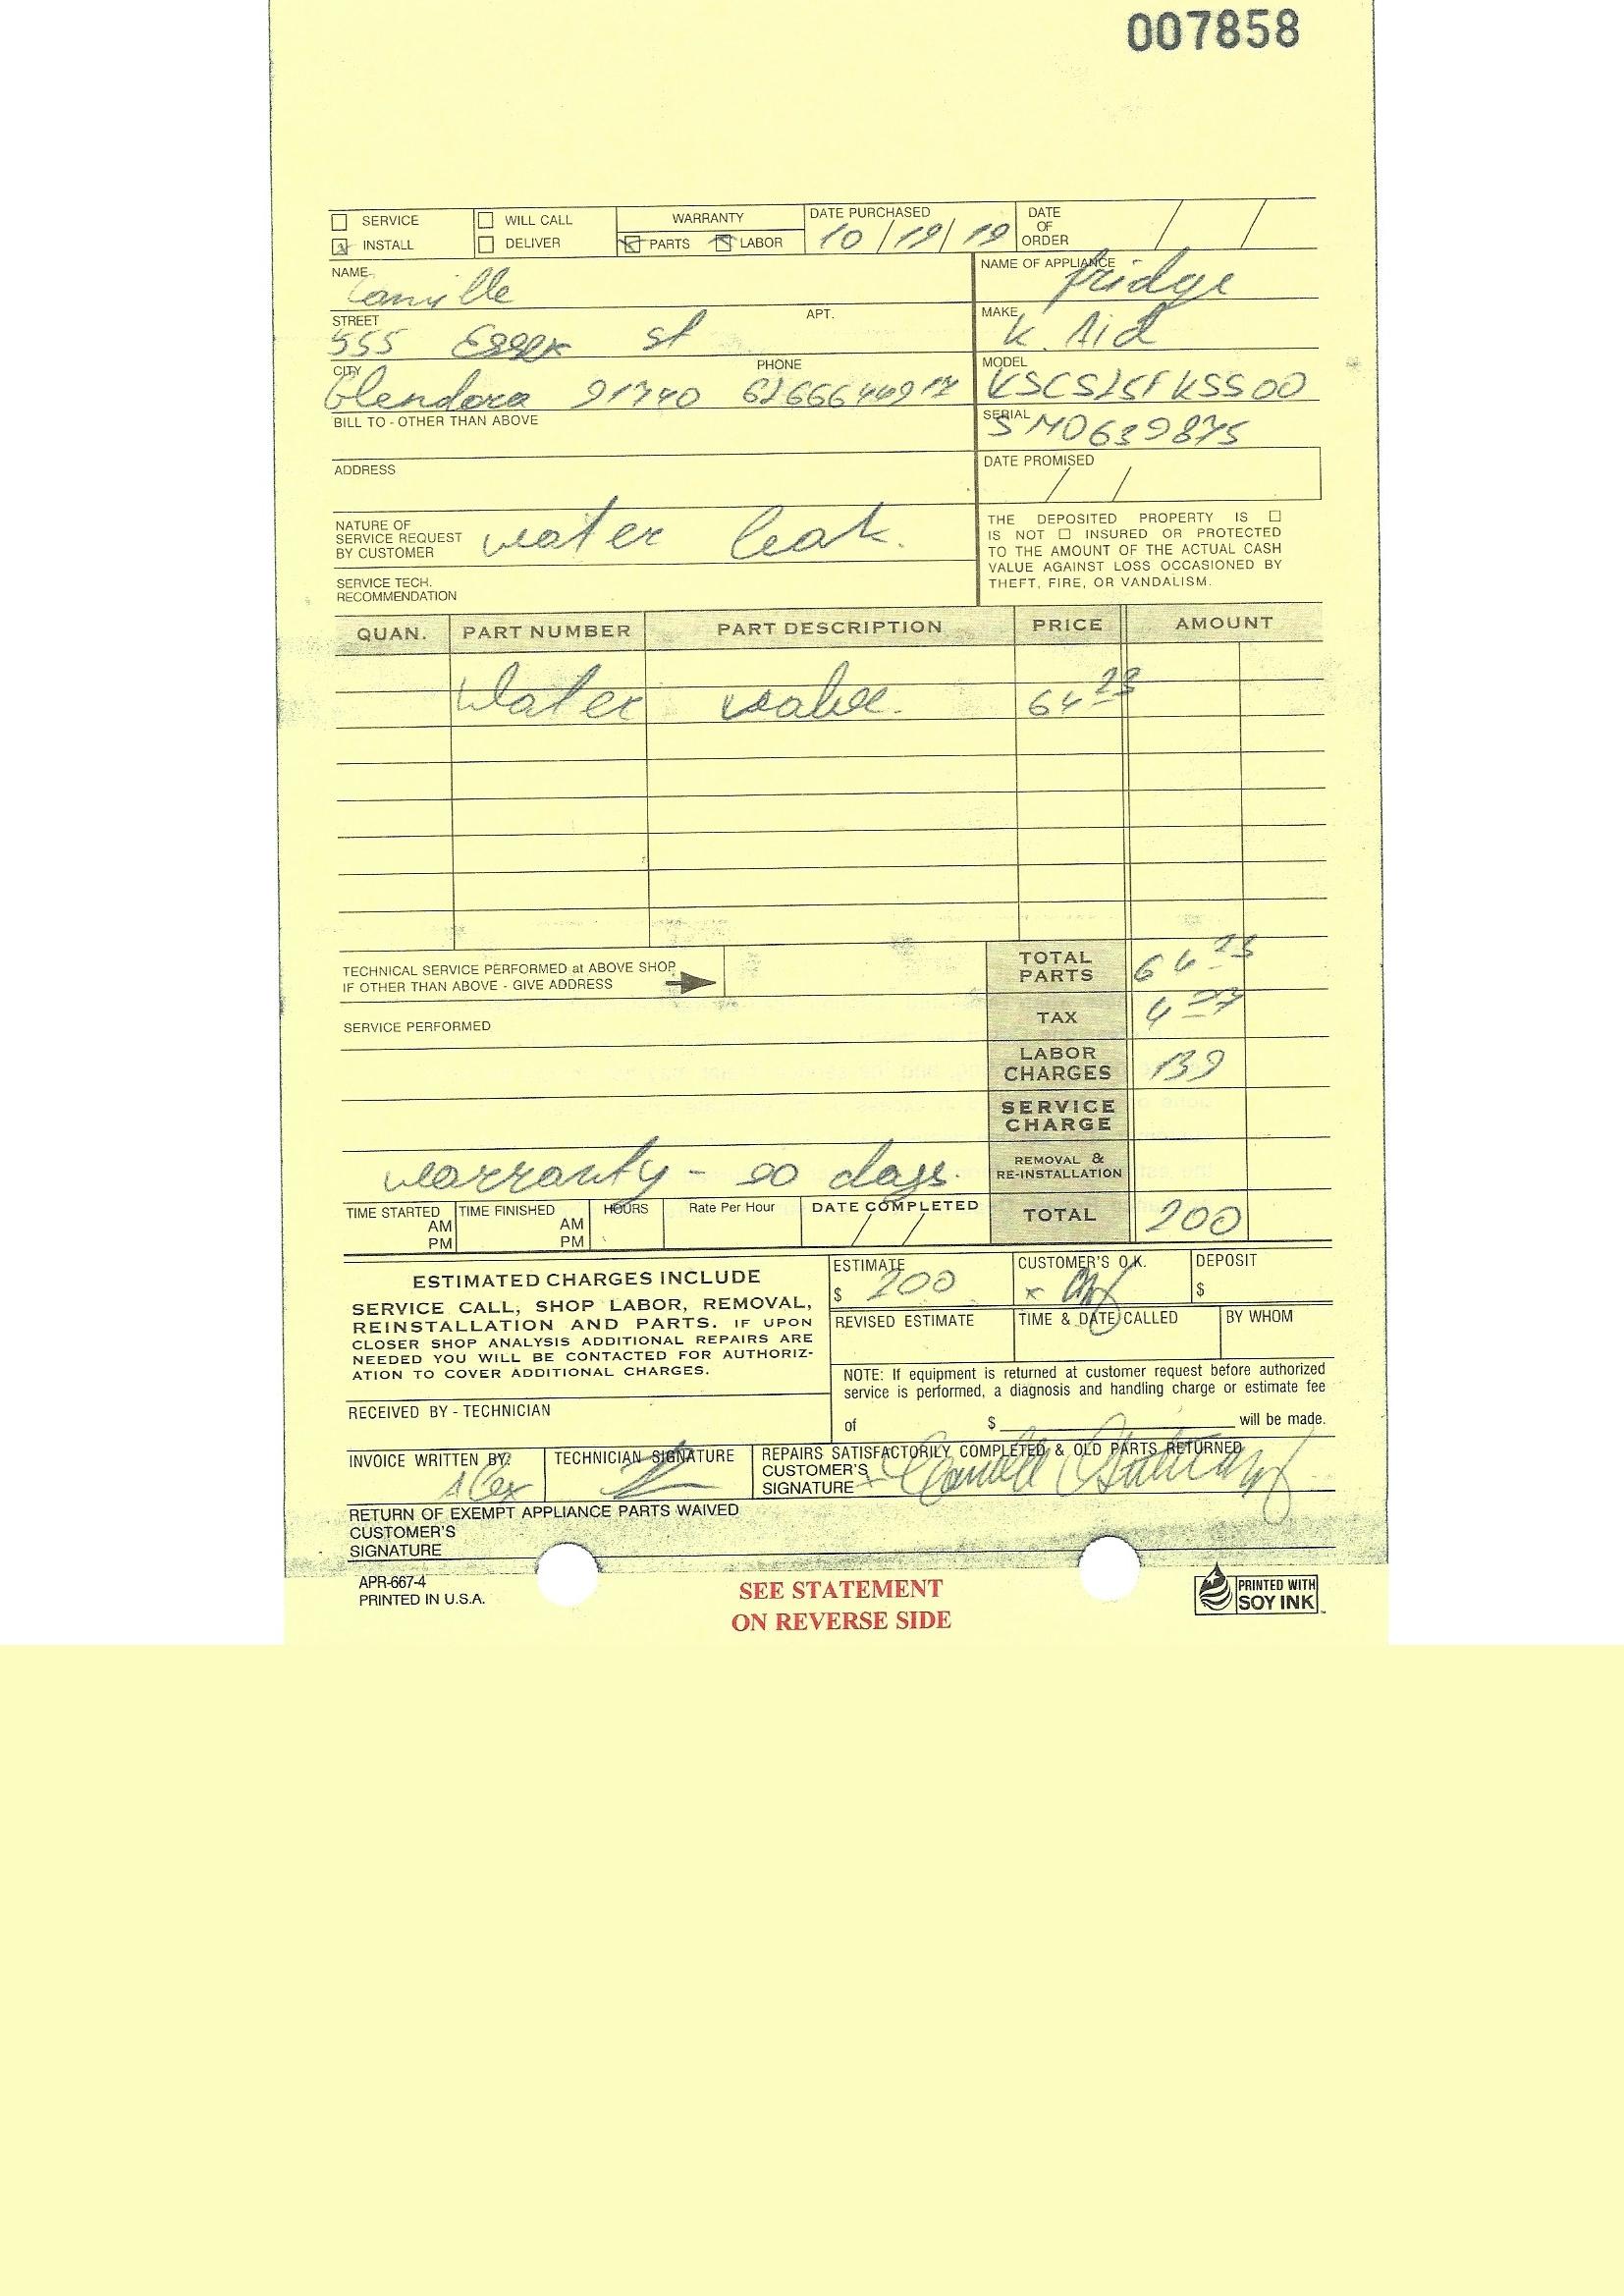 007858
SERVICE WILL CALL WARRANTY DATE PURCHASED DATE OF ORDER
INSTALL DELIVER PARTS LABOR 10/19/19
NAME Camille NAME OF APPLIANCE fridge
STREET 555 Essex st APT. MAKE K. Aid
CITY Glendora 91740 PHONE MODEL
BILL TO - OTHER THAN ABOVE SERIAL SM0639875
ADDRESS DATE PROMISED / /
NATURE OF SERVICE REQUEST BY CUSTOMER water leak.
THE DEPOSITED PROPERTY IS
IS NOT INSURED OR PROTECTED
TO THE AMOUNT OF THE ACTUAL CASH
VALUE AGAINST LOSS OCCASIONED BY
THEFT, FIRE, OR VANDALISM.
SERVICE TECH. RECOMMENDATION
QUAN. PART NUMBER PART DESCRIPTION PRICE AMOUNT
Water valve. 64 23
TECHNICAL SERVICE PERFORMED at ABOVE SHOP
IF OTHER THAN ABOVE - GIVE ADDRESS
TOTAL PARTS 64 23
SERVICE PERFORMED
TAX
LABOR CHARGES 139
SERVICE CHARGE
warranty - 90 days.
REMOVAL & RE-INSTALLATION
TIME STARTED AM PM TIME FINISHED AM PM HOURS Rate Per Hour DATE COMPLETED / / TOTAL 200
ESTIMATED CHARGES INCLUDE
SERVICE CALL, SHOP LABOR, REMOVAL,
REINSTALLATION AND PARTS. IF UPON
CLOSER SHOP ANALYSIS ADDITIONAL REPAIRS ARE
NEEDED YOU WILL BE CONTACTED FOR AUTHORIZ-
ATION TO COVER ADDITIONAL CHARGES.
ESTIMATE $ 200 CUSTOMER'S O.K. x DEPOSIT $
REVISED ESTIMATE TIME & DATE CALLED BY WHOM
NOTE: If equipment is returned at customer request before authorized
service is performed, a diagnosis and handling charge or estimate fee
of $ will be made.
RECEIVED BY - TECHNICIAN
INVOICE WRITTEN BY: Alex TECHNICIAN SIGNATURE
REPAIRS SATISFACTORILY COMPLETED & OLD PARTS RETURNED
CUSTOMER'S SIGNATURE
RETURN OF EXEMPT APPLIANCE PARTS WAIVED
CUSTOMER'S
SIGNATURE
APR-667-4
PRINTED IN U.S.A.
SEE STATEMENT
ON REVERSE SIDE
PRINTED WITH
SOY INK